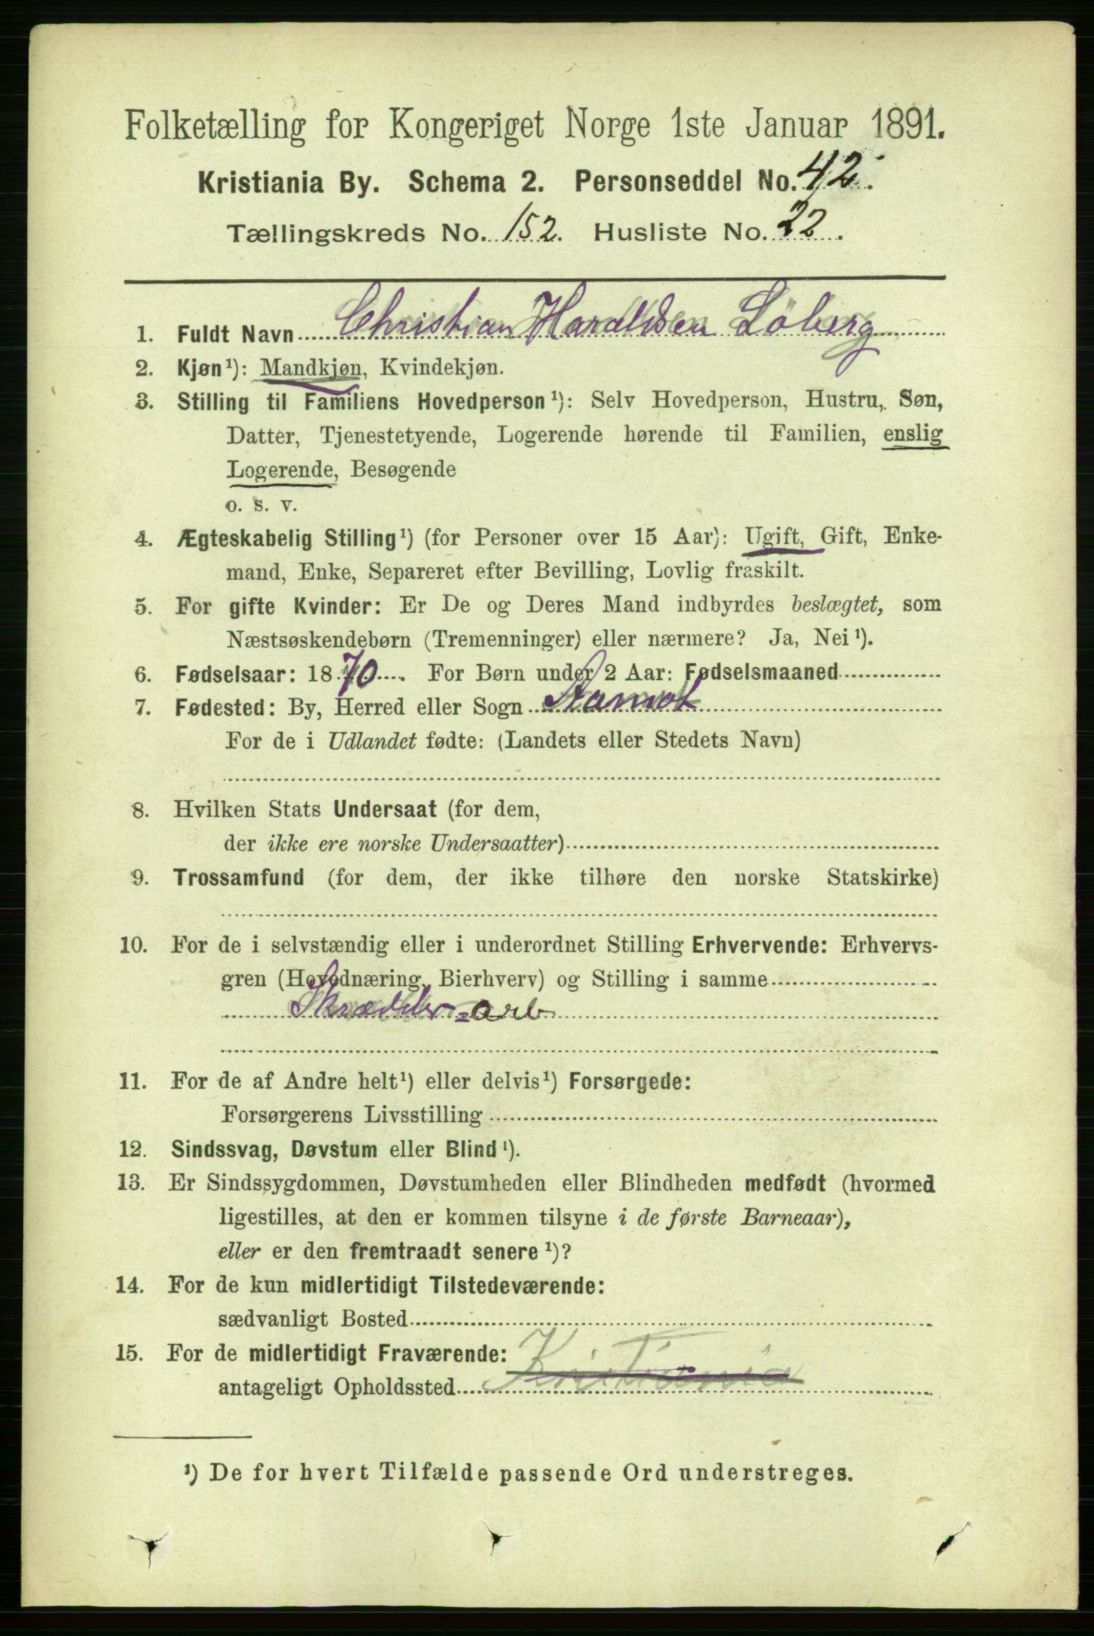 Folketælling for Kongeriget Norge 1ste Januar 1891.
Kristiania By. Schema 2. Personseddel No. 42.
Tællingskreds No. 152. Husliste No. 22.
1. Fuldt Navn Christian Haraldsen Löberg
2. Kjøn¹): Mandkjøn, Kvindekjøn.
3. Stilling til Familiens Hovedperson¹): Selv Hovedperson, Hustru, Søn,
Datter, Tjenestetyende, Logerende hørende til Familien, enslig
Logerende, Besøgende
o. s. v.
4. Ægteskabelig Stilling¹) (for Personer over 15 Aar): Ugift, Gift, Enke-
mand, Enke, Separeret efter Bevilling, Lovlig fraskilt.
5. For gifte Kvinder: Er De og Deres Mand indbyrdes beslægtet, som
Næstsøskendebørn (Tremenninger) eller nærmere? Ja, Nei¹).
6. Fødselsaar: 1870. For Børn under 2 Aar: Fødselsmaaned
7. Fødested: By, Herred eller Sogn Aamot
For de i Udlandet fødte: (Landets eller Stedets Navn)
8. Hvilken Stats Undersaat (for dem,
der ikke ere norske Undersaatter)
9. Trossamfund (for dem, der ikke tilhøre den norske Statskirke)
10. For de i selvstændig eller i underordnet Stilling Erhvervende: Erhvervs-
gren (Hovednæring, Bierhverv) og Stilling i samme
Skrædder=arb
11. For de af Andre helt¹) eller delvis¹) Forsørgede:
Forsørgerens Livsstilling
12. Sindssvag, Døvstum eller Blind¹).
13. Er Sindssygdommen, Døvstumheden eller Blindheden medfødt (hvormed
ligestilles, at den er kommen tilsyne i de første Barneaar),
eller er den fremtraadt senere¹)?
14. For de kun midlertidigt Tilstedeværende:
sædvanligt Bosted
15. For de midlertidigt Fraværende:
antageligt Opholdssted Kristiania
¹) De for hvert Tilfælde passende Ord understreges.